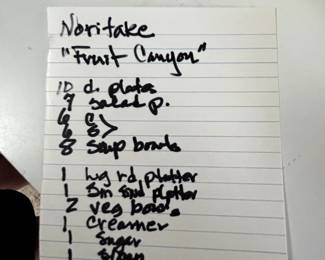 Noritake
"Fruit Canyon"
10 d. plates
7 salad p.
6 C >
6 S
8 soup bowls
1 Lg rd platter
1 Sm rnd platter
2 veg bowl.
1 Creamer
1 Sugar
1